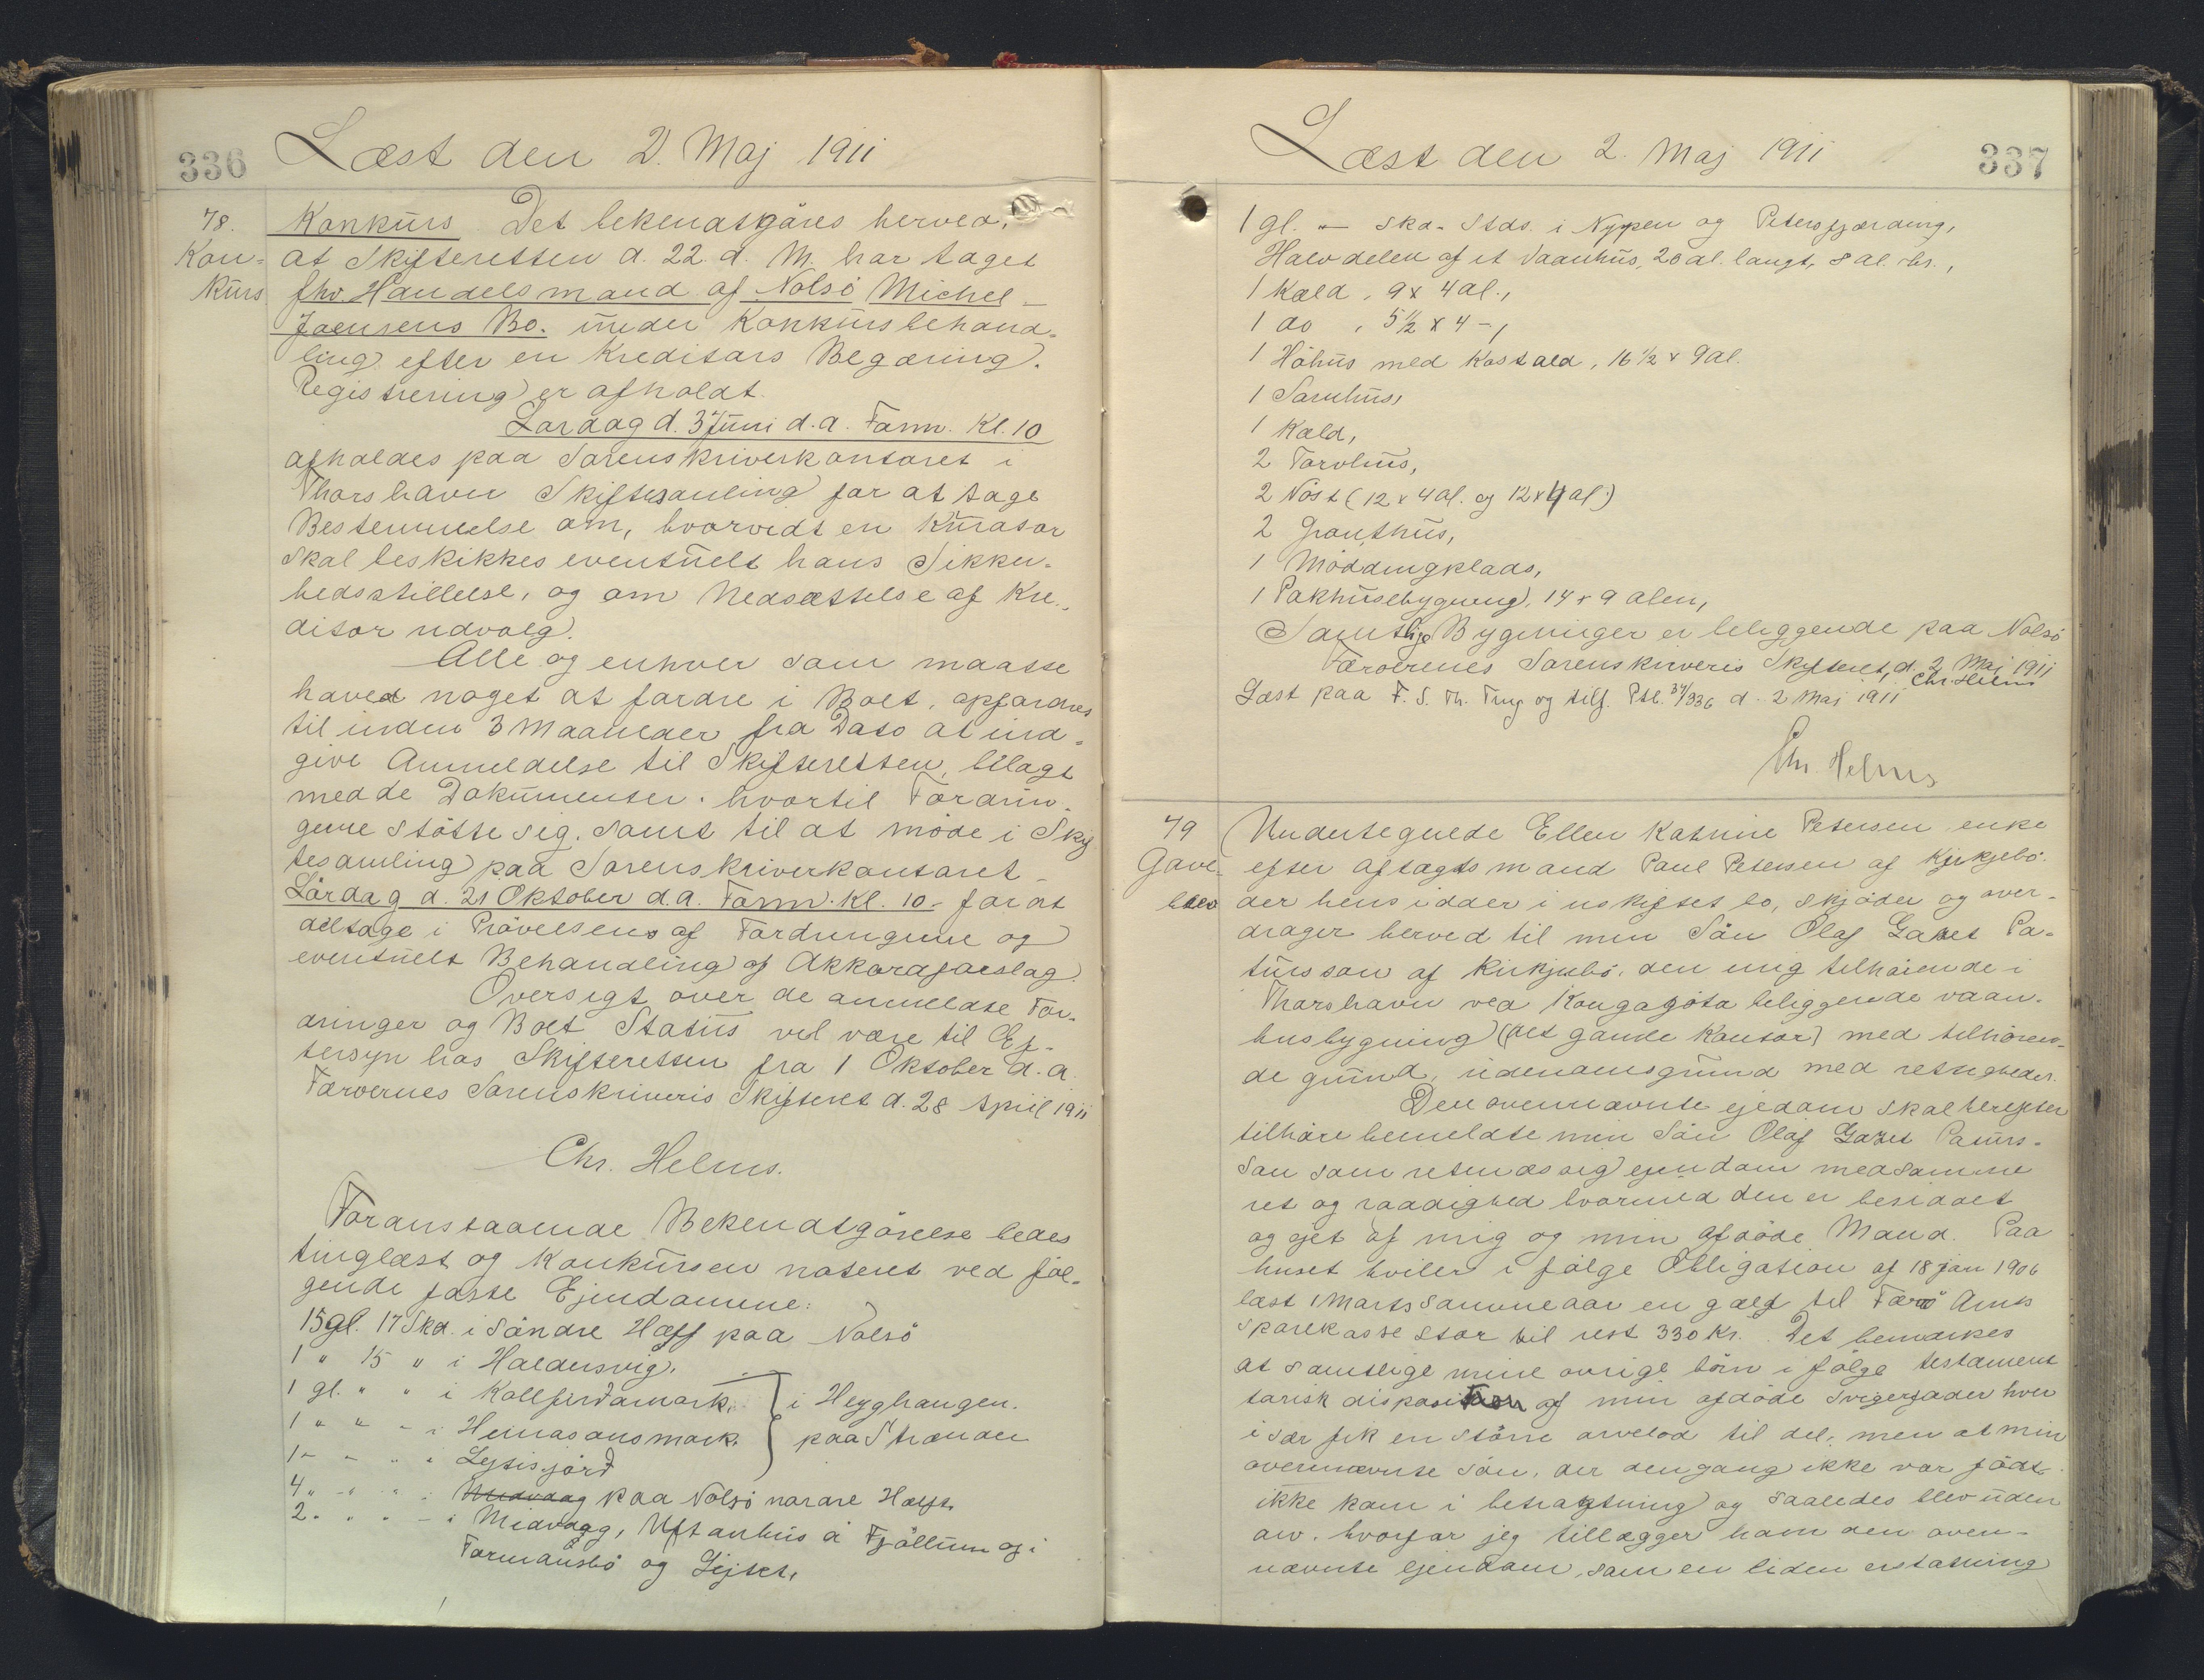 336
Læst den 2. Maj 1911
78.
Kon-
kurs
Konkurs. Det bekendtgöres herved,
at Skifteretten d. 22. d. M. har taget
fhv. Handelsmand af Nolsö Michel
Joensens Bo. under Konkursbehand-
ling efter en Kreditors Begæring.
Registrering er afholdt.
Lördag d. 3 Juni d.a. Form. Kl. 10
afholdes paa Sorenskriverkontoret i
Thorshavn Skiftesamling for at tage
Bestemmelse om, hvorvidt en Kurator
skal beskikkes eventuelt hans Sikker-
hedsstillelse, og om Nedsættelse af Kre-
ditor udvalg.
Alle og enhver som maatte
have noget at fordre i Boet, opfordres
til inden 3 Maaneder fra Dato at ind-
give Anmeldelse til Skifteretten, bilagt
med de Dokumenter, hvortil Fordrin-
gerne stötte sig, samt til at möde i Skif
tesamling paa Sorenskriverkontoret
Lördag d. 21 Oktober d.a. Form. Kl. 10 for at
deltage i Prövelsens af Fordringerne og
eventuelt Behandling af Akkordforslag.
Oversigt over de anmeldte For-
dringer og Boet Status vil være til Ef-
tersyn hos Skifteretten fra 1 Oktober d.a.
Færoernes Sorenskriveris Skifteret d. 28 April 1911
Chr. Helms.
Foranstaaende Bekendtgörelse bedes
tinglæst og Konkursen noteret ved föl-
gende faste Ejendomme:
15 gl. 17 Skd. i Söndre Hælf paa Nolsö
1 " 15 " i Haldersvig,
1 gl. " " i Kollfirdamark, } i Heyghangen.
1 " " - i Heinasonsmark. } paa Strænder
1 - - " " Lejtisjörd
4 " - " " Midvaag paa Nolsö nordre Hælft.
2 . " " - i Midvaag, Uftanhus á Fjöllum og i
Formansbö og Lejtet,
337
Læst den 2. Maj 1911
1 gl. " — Skd. Stds. i Nyppen og Petersfjærding,
Halvdelen af et Vaanhus, 20 al. langt, 8 al. br.,
1 Kæld, 9 x 4 al.,
1 do , 5½ x 4 -,
1 Höhus med Kostald, 16½ x 9 al.
1 Sornhus,
1 Kæld,
2 Torvhus,
2 Nöst (12 x 4 al. og 12 x 4 al.)
2 Gronthus,
1 Möddingplads,
1 Pakhusbygning, 14 x 9 alen,
Samtlige Bygninger er beliggende paa Nolsö
Færoernes Sorenskriveris Skifteret, d. 2 Maj 1911
Chr. Helms
Læst paa F. S. Th. Ting og tilf. Ptl. 34/336 d. 2 Maj 1911
Chr. Helms
79
Gave-
brev
Undertegnede Ellen Katrine Petersen enke
efter aftægtsmand Paul Petersen af Kirkjebö.
der hensidder i uskiftet bo, skjöder og over-
drager herved til min Sön Olaf Gazet Pa-
tursson af Kirkjubö, den mig tilhörende i
Thorshavn ved Kongagöta beliggende vaan-
husbygning (det gamle Kontor) med tilhören-
de grund, udenomsgrund med rettigheder.
Den ovennævnte ejedom skal herefter
tilhöre bemeldte min Sön Olaf Gazet Paturs-
son som retmæssig ejendom med samme
ret og raadighed hvormed den er besiddet
og ejet af mig og min afdöde Mand. Paa
huset hviler i fölge Obligation af 18 jan 1906
læst 1 Marts samme aar en gæld til Færö Amts
Sparekasse stor til rest 330 Kr. Det bemærkes
at samtlige mine övrige börn i fölge testament
tarisk disposition af min afdöde svigerfader hver
især fik en större arvelod til del; men at min
ovennævnte sön, der dengang ikke var födt
ikke kom i betragtning og saaledes blev uden
arv. hvorfor jeg tillægger ham den oven-
nævnte ejendom, som en liden erstatning